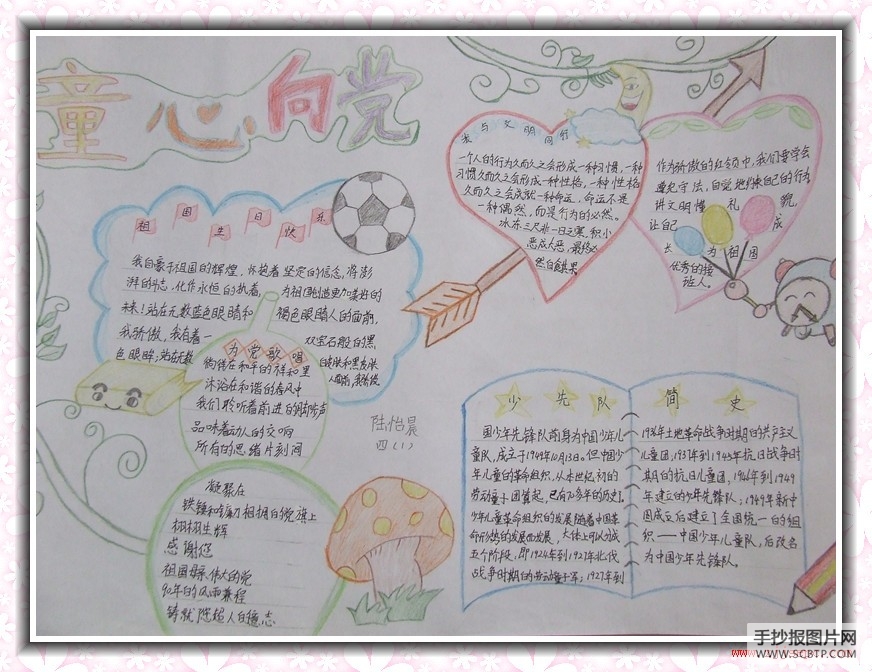 童心向党
祖国生日快乐
我自豪于祖国的辉煌,怀抱着坚定的信念,将澎
湃的斗志,化作永恒的执着,为祖国创造更加美好的
未来!站在无数蓝色眼睛和褐色眼睛人的面前,
我骄傲,我有着一双宝石般的黑
色眼眸;站在无数
为党歌唱
徜徉在和平的祥和里
沐浴在和谐的春风中
我们聆听着前进的脚步声
品味着动人的交响
所有的思绪片刻间
凝聚在
铁锤和镰刀相拥的党旗上
栩栩生辉
感谢您
祖国母亲、伟大的党
90年的风雨兼程
铸就
陆怡晨
四(1)
我与文明同行
一个人的行为久而久之会形成一种习惯,一种
习惯久而久之会形成一种性格,一种性格
久而久之会成就一种命运。命运不是
一种偶然,而是行为的必然。
冰冻三尺非一日之寒。积小
恶成大恶,最终必
然自食其果
作为骄傲的红领巾,我们要学会
遵纪守法,自觉地约束自己的行为
讲文明懂礼貌
让自己成
长为祖国
优秀的接
班人。
少先队简史
国少年先锋队前身为中国少年儿
童队,成立于1949年10月13日。但中国少
年儿童的革命组织,从本世纪初的
劳动童子团算起,已有70多年的历史了。
少年儿童革命组织的发展随着中国革
命形势的发展而发展,大体上可以分成
五个阶段,即1924年到1927年北伐
战争时期的劳动童子军;1927年到
1936年土地革命战争时期的共产主义
儿童团;1937年到1945年抗日战争时
期的抗日儿童团,1946年到1949
年建立的少年先锋队;1949年新中
国成立后建立了全国统一的组
织——中国少年儿童队,后改名
为中国少年先锋队。
手抄报图片网
WWW.SCBTP.COM